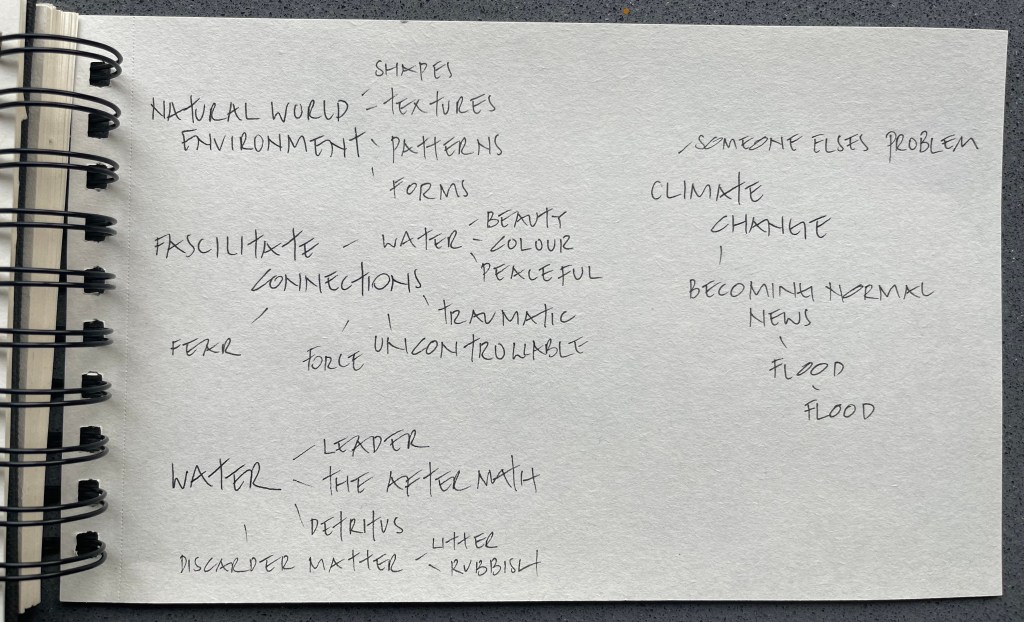 SHAPES
NATURAL WORLD - TEXTURES
ENVIRONMENT PATTERNS
FORMS
FASCILITATE - WATER - BEAUTY
- COLOUR
PEACEFUL
CONNECTIONS
TRAUMATIC
FEAR
FORCE UNCONTROLLABLE
WATER
LEADER
THE AFTER MATH
DETRITUS
DISCARDER MATTER - LITTER
RUBBISH
SOMEONE ELSES PROBLEM
CLIMATE
CHANGE
BECOMING NORMAL
NEWS
FLOOD
FLOOD